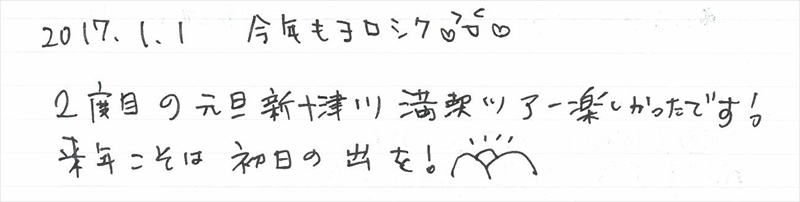 2017.1.1 今年もヨロシク
2度目の元旦新十津川満喫ツアー楽しかったです!
来年こそは初日の出を!